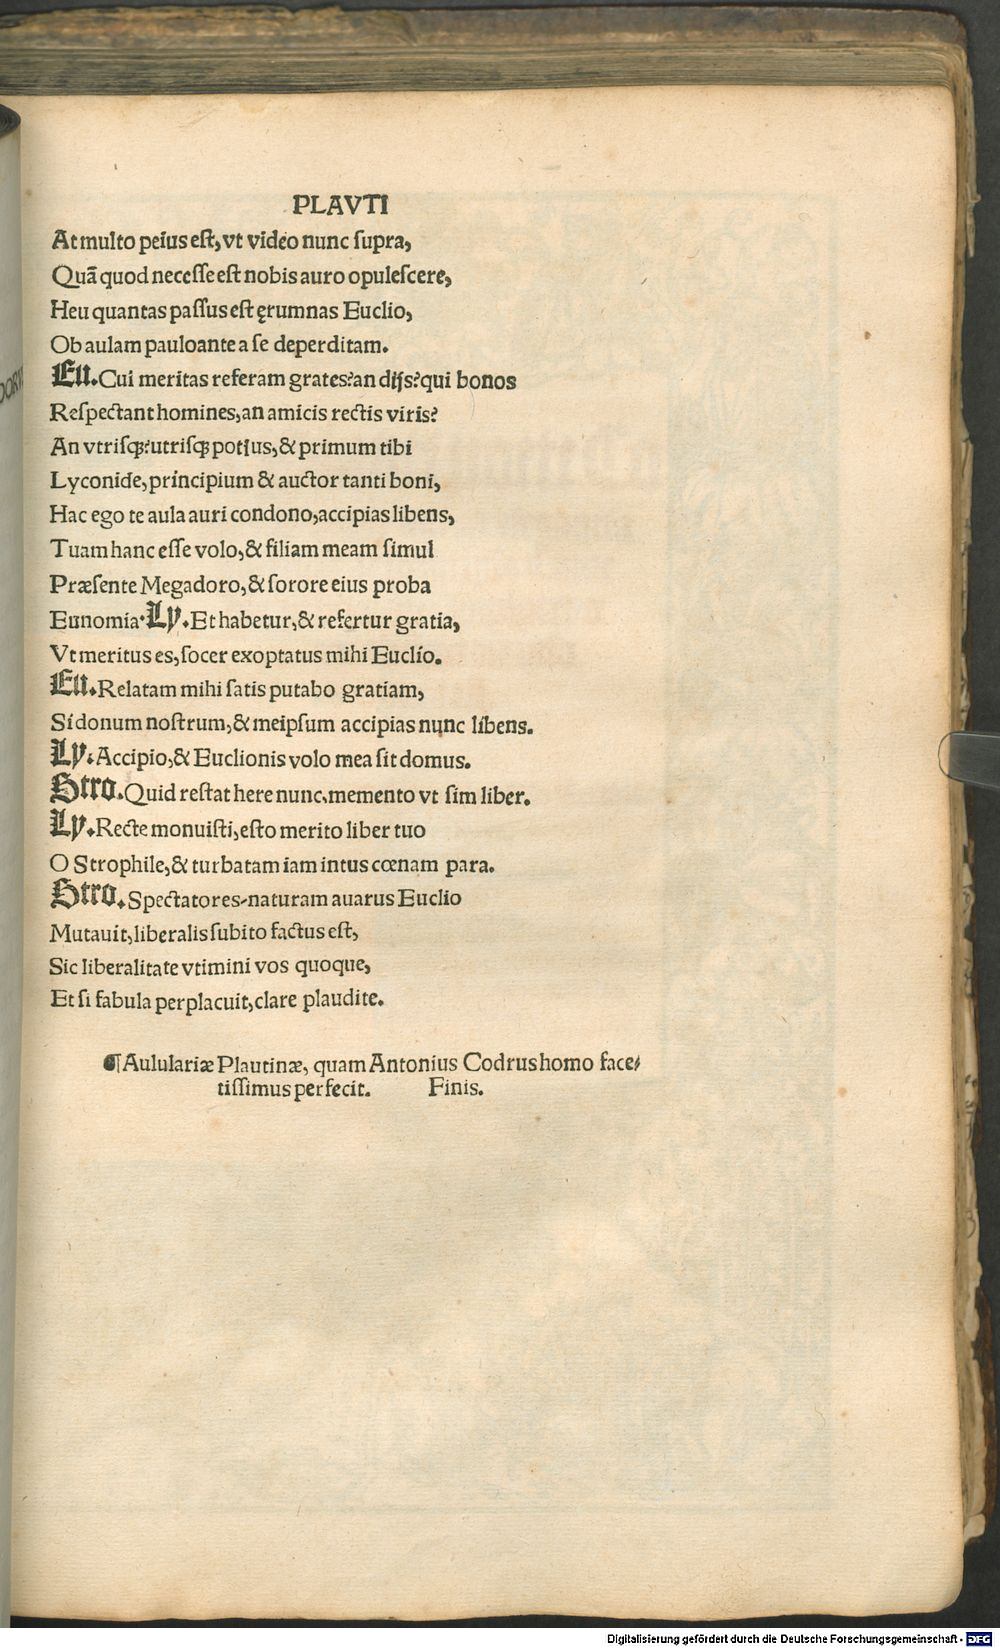 PLAVTI
At multo peius est, vt video nunc supra,
Quã quod necesse est nobis auro opulescere,
Heu quantas passus est ęrumnas Euclio,
Ob aulam pauloante a se deperditam.
Eu. Cui meritas referam grates? an dijs? qui bonos
Respectant homines, an amicis rectis viris?
An vtrisqꝫ? utrisqꝫ potius, & primum tibi
Lyconide, principium & auctor tanti boni,
Hac ego te aula auri condono, accipias libens,
Tuam hanc esse volo, & filiam meam simul
Præsente Megadoro, & sorore eius proba
Eunomia. Ly. Et habetur, & refertur gratia,
Vt meritus es, socer exoptatus mihi Euclio.
Eu. Relatam mihi satis putabo gratiam,
Si donum nostrum, & meipsum accipias nunc libens.
Ly. Accipio, & Euclionis volo mea sit domus.
Stro. Quid restat here nunc, memento vt sim liber.
Ly. Recte monuisti, esto merito liber tuo
O Strophile, & turbatam iam intus cœnam para.
Stro. Spectatores, naturam auarus Euclio
Mutauit, liberalis subito factus est,
Sic liberalitate vtimini vos quoque,
Et si fabula perplacuit, clare plaudite.
¶ Aululariæ Plautinæ, quam Antonius Codrus homo face/
tissimus perfecit. Finis.
Digitalisierung gefördert durch die Deutsche Forschungsgemeinschaft - DFG